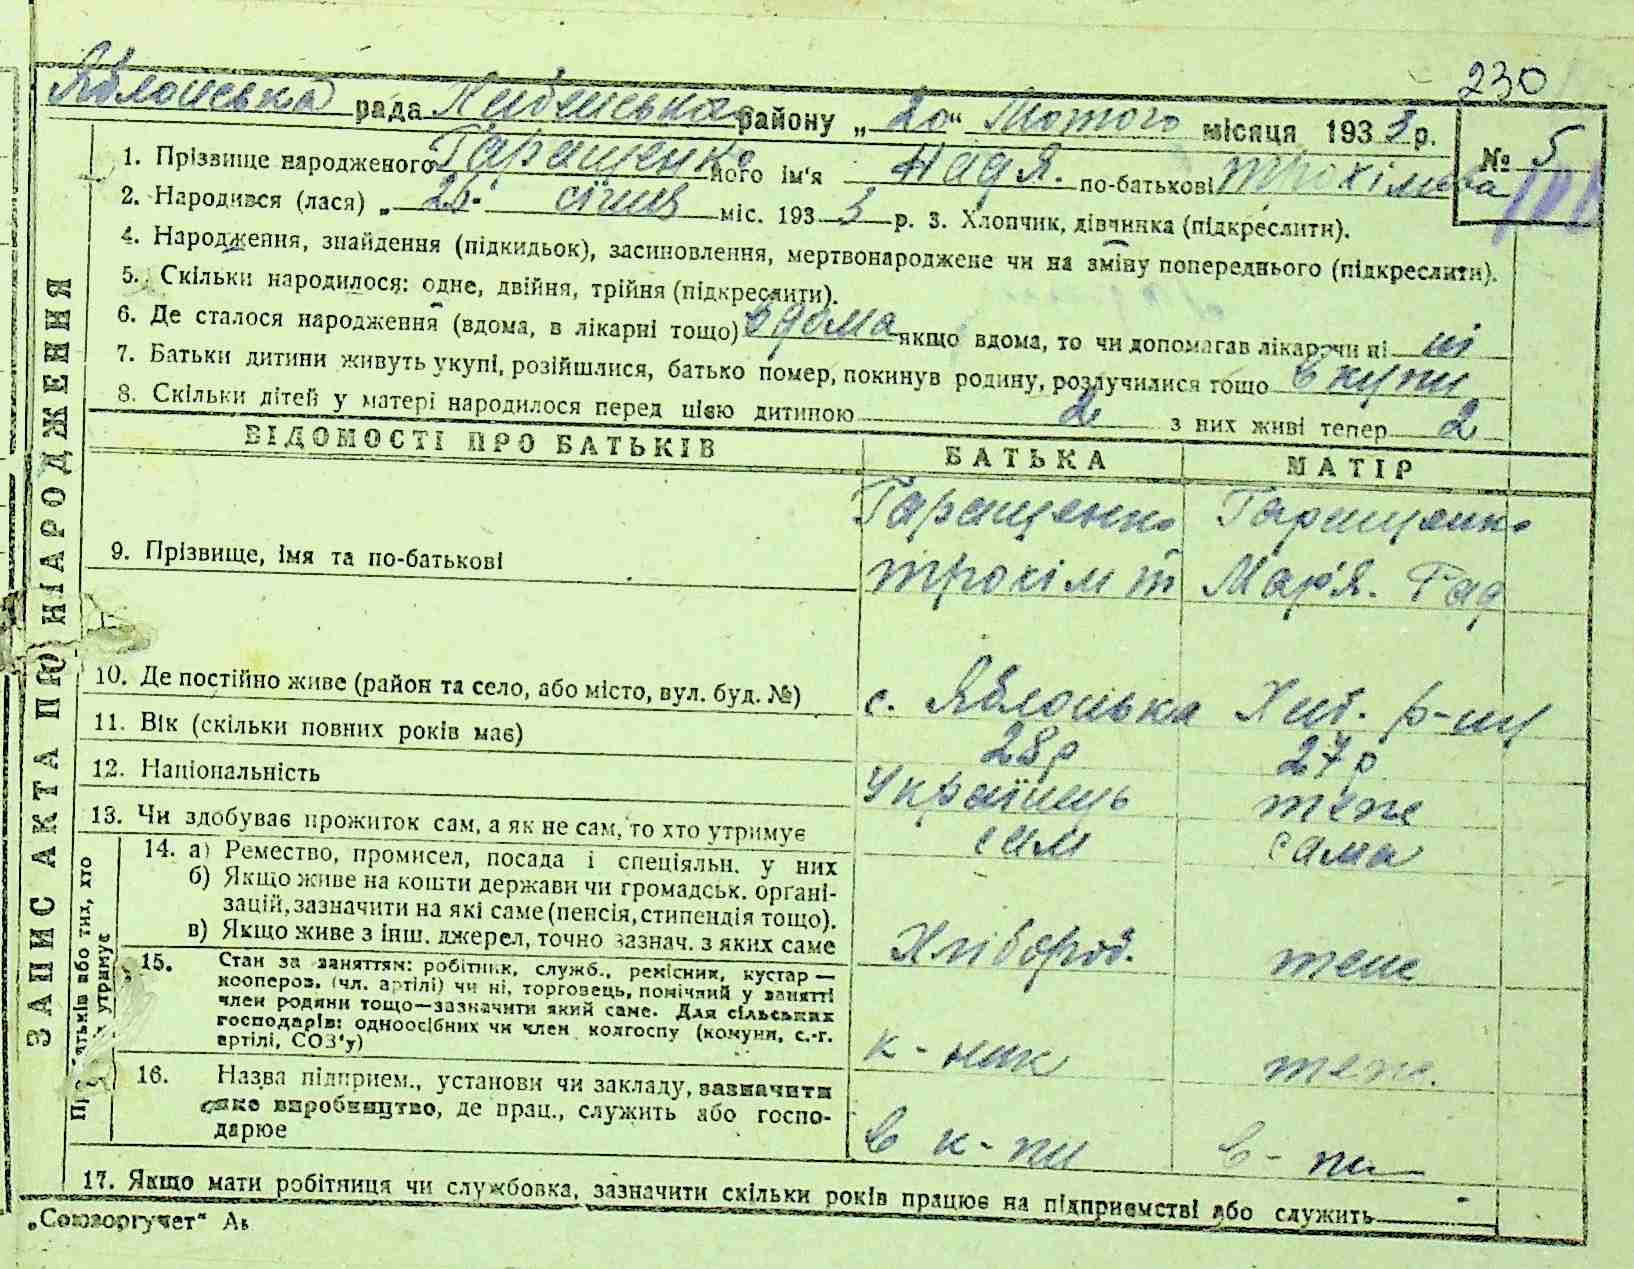 230
Яблонська рада районy „20“ Лютого місяця 1933 р.
№ 5
1. Прізвище народженого Гаращенко його ім'я Надя. по-батькові Трохімовна
2. Народився (лася) „ 25. січня міс. 1933 р. 3. Хлопчик, дівчинка (підкреслити).
4. Народження, знайдення (підкидьок), засиновлення, мертвонароджене чи на зміну попереднього (підкреслити).
5. Скільки народилося: одне, двійня, трійня (підкреслити).
6. Де сталося народження (вдома, в лікарні тощо) вдома якщо вдома, то чи допомагав лікар чи ні ні
7. Батьки дитини живуть укупі, розійшлися, батько помер, покинув родину, розлучилися тощо вкупи
8. Скільки дітей у матері народилося перед цією дитиною 2 з них живі тепер 2
ВІДОМОСТІ ПРО БАТЬКІВ БАТЬКА МАТІР
9. Прізвище, імя та по-батькові Гаращенко Трохім Т Гаращенко Мар'я. Гад
10. Де постійно живе (район та село, або місто, вул. буд. №) с. Яблонька р-ну
11. Вік (скільки повних років має) 28 р 27 р.
12. Національність Українець теж
13. Чи здобуває прожиток сам, а як не сам, то хто утримує сам сама
14. а) Ремество, промисел, посада і спеціяльн. у них
б) Якщо живе на кошти держави чи громадськ. органі-
зацій, зазначити на які саме (пенсія, стипендія тощо).
в) Якщо живе з інш. джерел, точно зазнач. з яких саме Хлібороб. теж
15. Стан за заняттям: робітник, служб., ремісник, кустар—
коопероз. (чл. артілі) чи ні, торговець, помічний у занятті
член родини тощо—зазначити який саме. Для сільських
господарів: одноосібних чи член колгоспу (комуни, с.-г.
артілі, СОЗ'у) к-ник теж.
16. Назва підприєм., установи чи закладу, зазначити
яке виробництво, де прац., служить або госпо-
дарює в к-пи в-пи
17. Якщо мати робітниця чи службовка, зазначити скільки років працює на підприємстві або служить -
„Союзоргучет“
ЗАПИС АКТА ПРО НАРОДЖЕННЯ
батьків або тих, хто
утримує